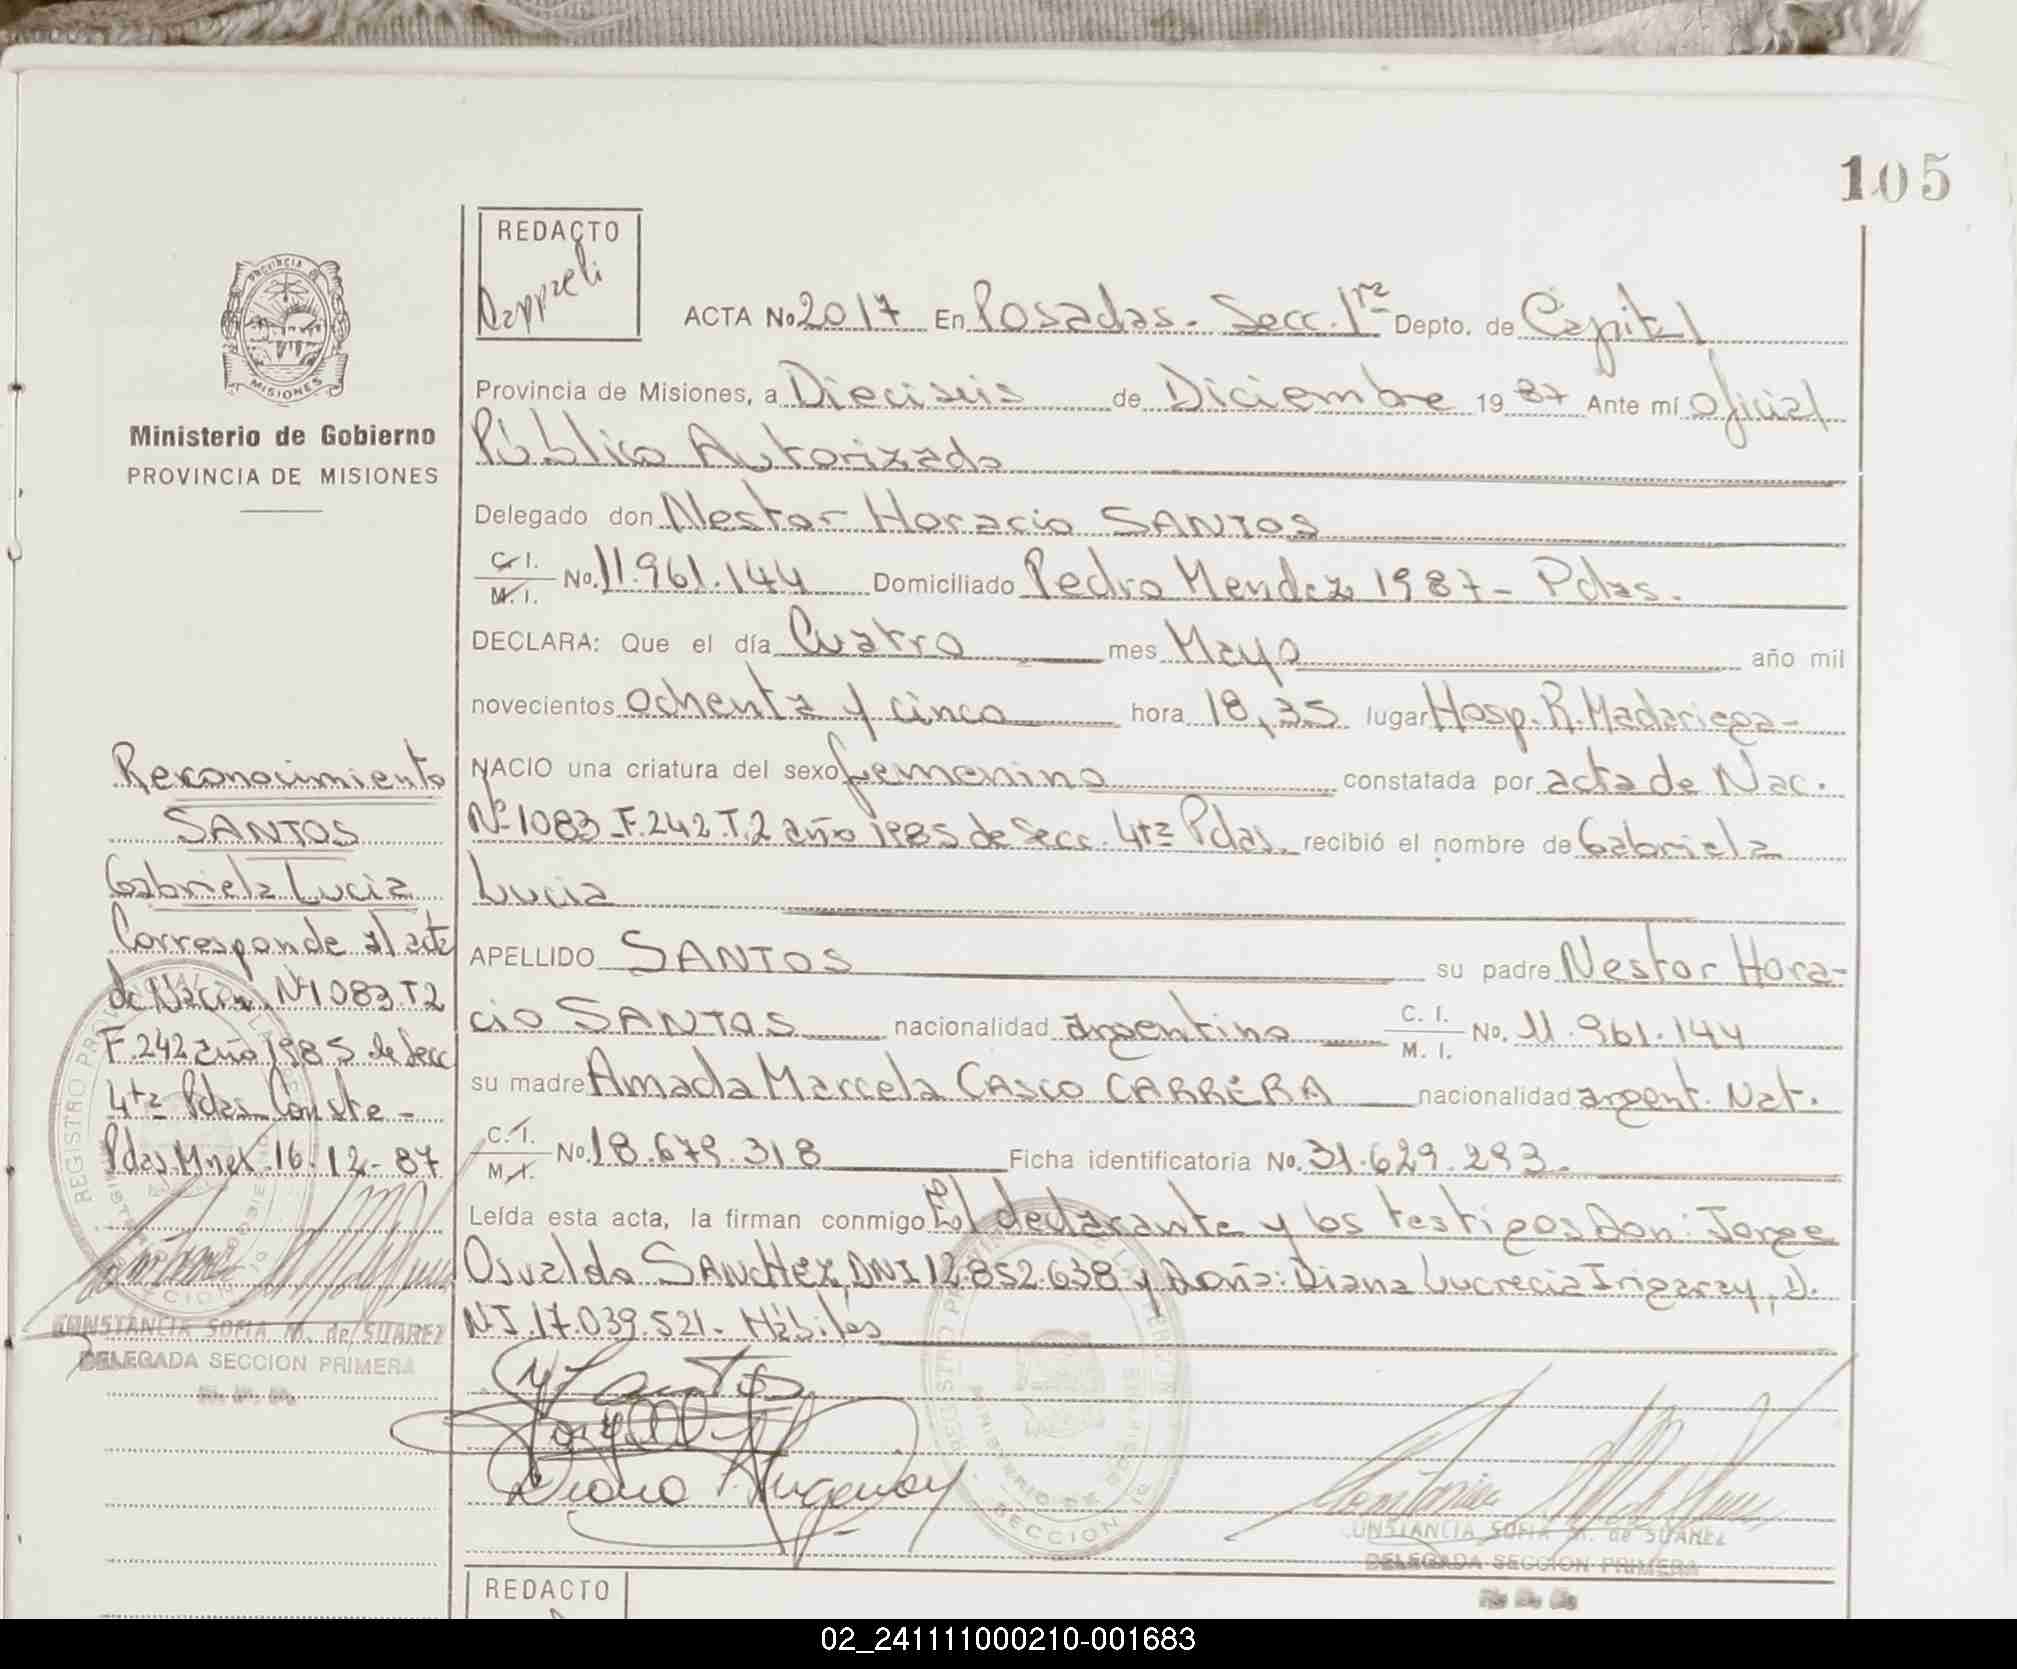 105
REDACTO
ACTA No 2017 En Posadas. Secc. 1ra Depto. de Capital
Provincia de Misiones, a Dieciseis de Diciembre 1987 Ante mí Oficial
Público Autorizado
Delegado don Nestor Horacio SANTOS
C. I. M. I. No. 11.961.144 Domiciliado Pedro Mendez 1987 - Pdas.
DECLARA: Que el día Cuatro mes Mayo año mil
novecientos ochenta y cinco hora 18,35 lugar Hosp. R. Madariaga-
NACIO una criatura del sexo femenino constatada por acta de Nac.
Nº 1083 F. 242 T. 2 año 1985 de Secc. 4ta Pdas. recibió el nombre de Gabriela
Lucia
APELLIDO SANTOS su padre Nestor Hora-
cio SANTOS nacionalidad argentino C. I. M. I. No. 11.961.144
su madre Amada Marcela CASCO CARRERA nacionalidad argent. Nat.
C. I. M. I. No. 18.679.318 Ficha identificatoria No. 31.629.293.
Leída esta acta, la firman conmigo El declarante y los testigos Don: Jorge
Osvaldo SANCHEZ, DNI 12.852.638 y Doña: Diana Lucrecia Irigaray, D.
NI. 17.039.521. Hábiles
Diana Irigaray
CONSTANCIA SOFIA M. de SUAREZ
DELEGADA SECCION PRIMERA
PROVINCIA DE
MISIONES
Ministerio de Gobierno
PROVINCIA DE MISIONES
Reconocimiento
SANTOS
Gabriela Lucia
Corresponde al acta
de Nacim. Nº 1083 T2
F. 242 año 1985 de Secc
4ta Pdas Conste -
Pdas Mnes. 16-12-87
CONSTANCIA SOFIA M. de SUAREZ
DELEGADA SECCION PRIMERA
REDACTO
02_241111000210-001683